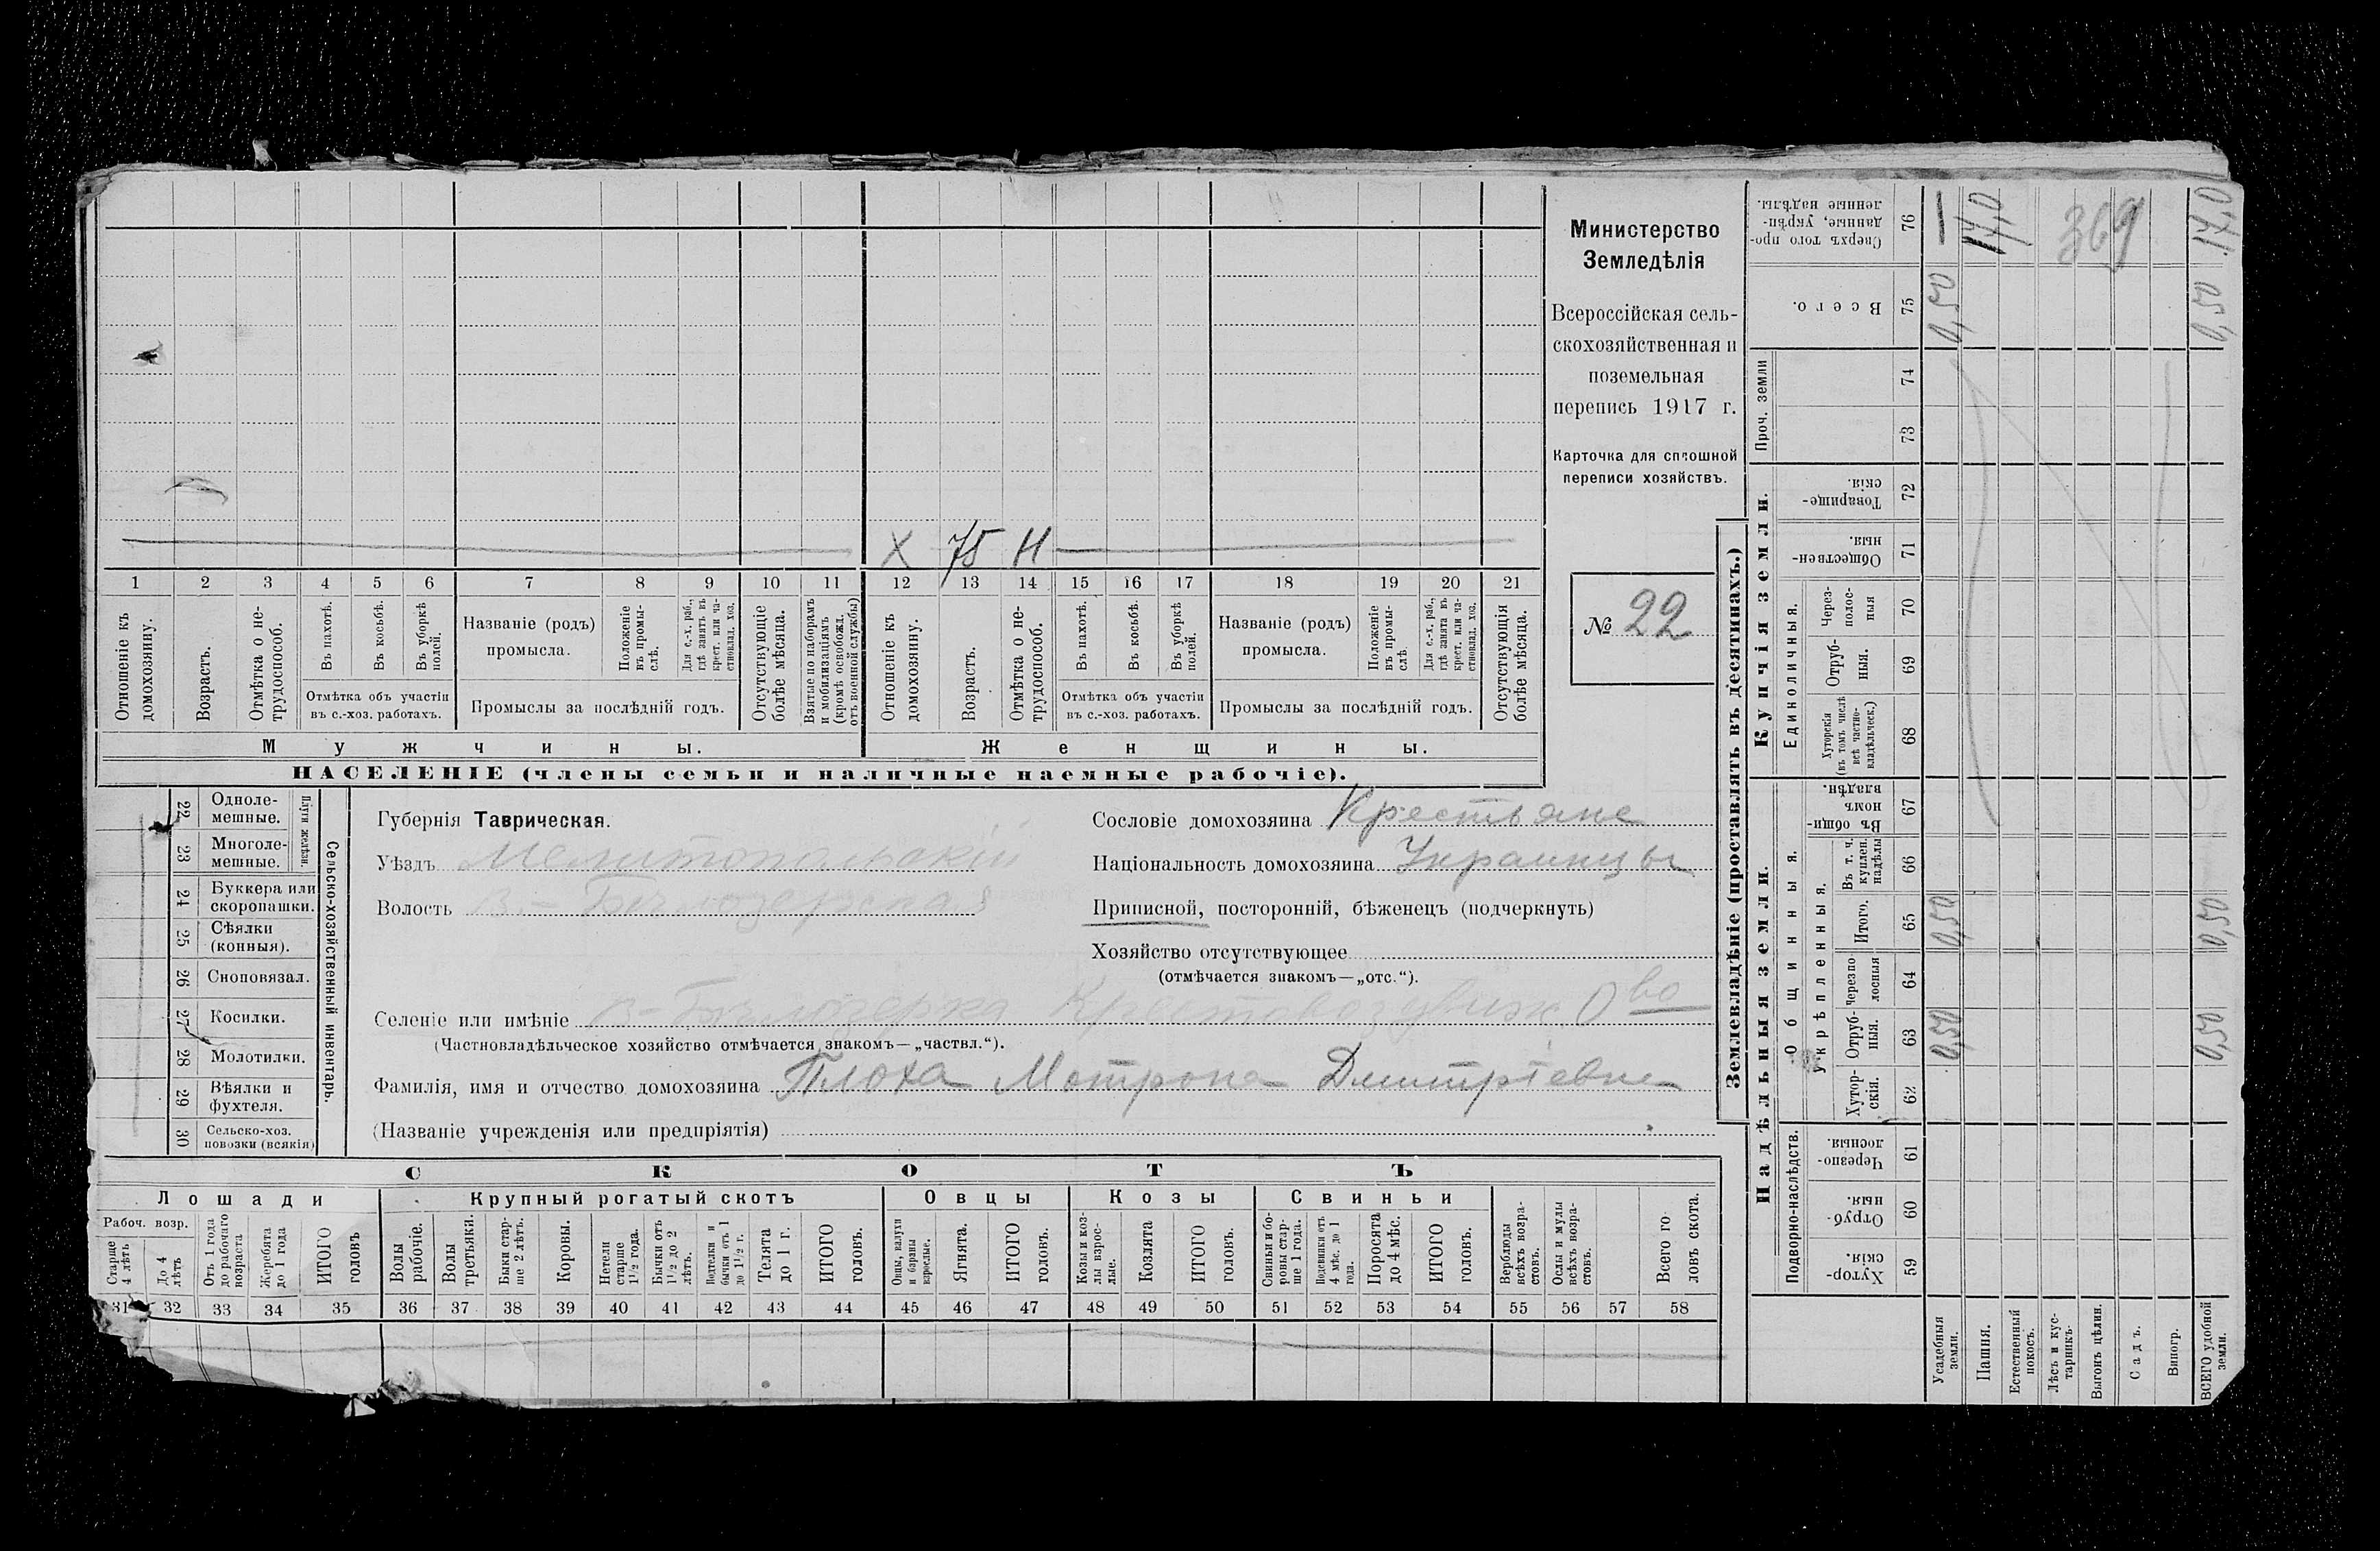 Министерство
Земледѣлія
Всероссійская сель-
скохозяйственная и
поземельная
перепись 1917 г.
Карточка для сплошной
переписи хозяйствъ.
№ 22
Х 75 Н
1 2 3 4 5 6 7 8 9 10 11 12 13 14 15 16 17 18 19 20 21
Отношеніе къ домохозяину.
Возрастъ.
Отмѣтка о не-трудоспособ.
Въ пахотѣ.
Въ косьбѣ.
Въ уборкѣ полей.
Отмѣтка объ участіи
въ с.-хоз. работахъ.
Названіе (родъ)
промысла.
Положеніе въ промы-слѣ.
Для с.-х. раб., гдѣ занятъ въ крест. или ча-стновлад. хоз.
Промыслы за послѣдній годъ.
Отсутствующіе болѣе мѣсяца.
Взятые по наборамъ и мобилизаціямъ (кромѣ освобожд. отъ военной службы)
Отношеніе къ домохозяину.
Возрастъ.
Отмѣтка о не-трудоспособ.
Въ пахотѣ.
Въ косьбѣ.
Въ уборкѣ полей.
Отмѣтка объ участіи
въ с.-хоз. работахъ.
Названіе (родъ)
промысла.
Положеніе въ промы-слѣ.
Для с.-х. раб., гдѣ занята въ крест. или ча-стновлад. хоз.
Промыслы за послѣдній годъ.
Отсутствующія болѣе мѣсяца.
Мужчины.
Женщины.
НАСЕЛЕНІЕ (члены семьи и наличные наемные рабочіе).
22 Одноле-мешные.
23 Многоле-мешные.
Плуги желѣзн.
24 Буккера или скоропашки.
25 Сѣялки (конныя).
26 Сноповязал.
27 Косилки.
28 Молотилки.
29 Вѣялки и фухтеля.
30 Сельско-хоз. повозки (всякія)
Сельско-хозяйственный инвентарь.
Губернія Таврическая.
Уѣздъ Мелитопольскій
Волость В.-Бѣлозерская
Сословіе домохозяина Крестьяне
Національность домохозяина Украинцы
Приписной, посторонній, бѣженецъ (подчеркнуть)
Хозяйство отсутствующее
(отмѣчается знакомъ—„отс.“).
Селеніе или имѣніе В-Бѣлозерка Крестовоздвиж. О во
(Частновладѣльческое хозяйство отмѣчается знакомъ—„частвл.“).
Фамилія, имя и отчество домохозяина Плоха Мотрона Дмитріевна
(Названіе учрежденія или предпріятія)
СКОТЪ
Лошади
Крупный рогатый скотъ
Овцы
Козы
Свиньи
Рабоч. возр.
Старше 4 лѣтъ
До 4 лѣтъ
Отъ 1 года до рабочаго возраста
Жеребята до 1 года
ИТОГО головъ
Волы рабочіе.
Волы третьяки.
Быки стар-ше 2 лѣтъ.
Коровы.
Нетели старше 1 1/2 года.
Бычки отъ 1 1/2 до 2 лѣтъ.
Нетелки и бычки отъ 1 до 1 1/2 г.
Телята до 1 г.
ИТОГО головъ.
Овцы, валухи и бараны взрослые.
Ягнята.
ИТОГО головъ.
Козы и коз-лы взрос-лые.
Козлята
ИТОГО головъ.
Свиньи и бо-ровы стар-ше 1 года.
Подсвинки отъ 4 мѣс. до 1 года.
Поросята до 4 мѣс.
ИТОГО головъ.
Верблюды всѣхъ возра-стовъ.
Ослы и мулы всѣхъ возра-стовъ.
Всего го-ловъ скота.
31 32 33 34 35 36 37 38 39 40 41 42 43 44 45 46 47 48 49 50 51 52 53 54 55 56 57 58
Землевладѣніе (проставлять въ десятинахъ.)
Сверхъ того про-данные, укрѣп-ленные надѣлы. 76 17,0 369 17,0
Всего. 75 0,50 0,50
Проч. земли
74
73
Купчія земли.
Товарище-скія. 72
Обществен-ныя. 71
Единоличныя.
Через-полос-ныя 70
Отруб-ныя. 69
Хуторскія (въ томъ числѣ всѣ частно-владѣльческ.) 68
Надѣльныя земли.
Общинныя.
Въ общин-номъ владѣн. 67
укрѣпленныя.
Въ т. ч. куплен. надѣлы 66
Итого. 65 0,50 0,50
Черезпо-лосныя 64
Отруб-ныя. 63 0,50 0,50
Хутор-скія. 62
Подворно-наслѣдств.
Черезпо-лосныя. 61
Отруб-ныя. 60
Хутор-скія. 59
Усадебныя земли.
Пашня.
Естественный покосъ.
Лѣсъ и кус-тарникъ.
Выгонъ цѣлин.
Садъ.
Виногр.
ВСЕГО удобной земли.